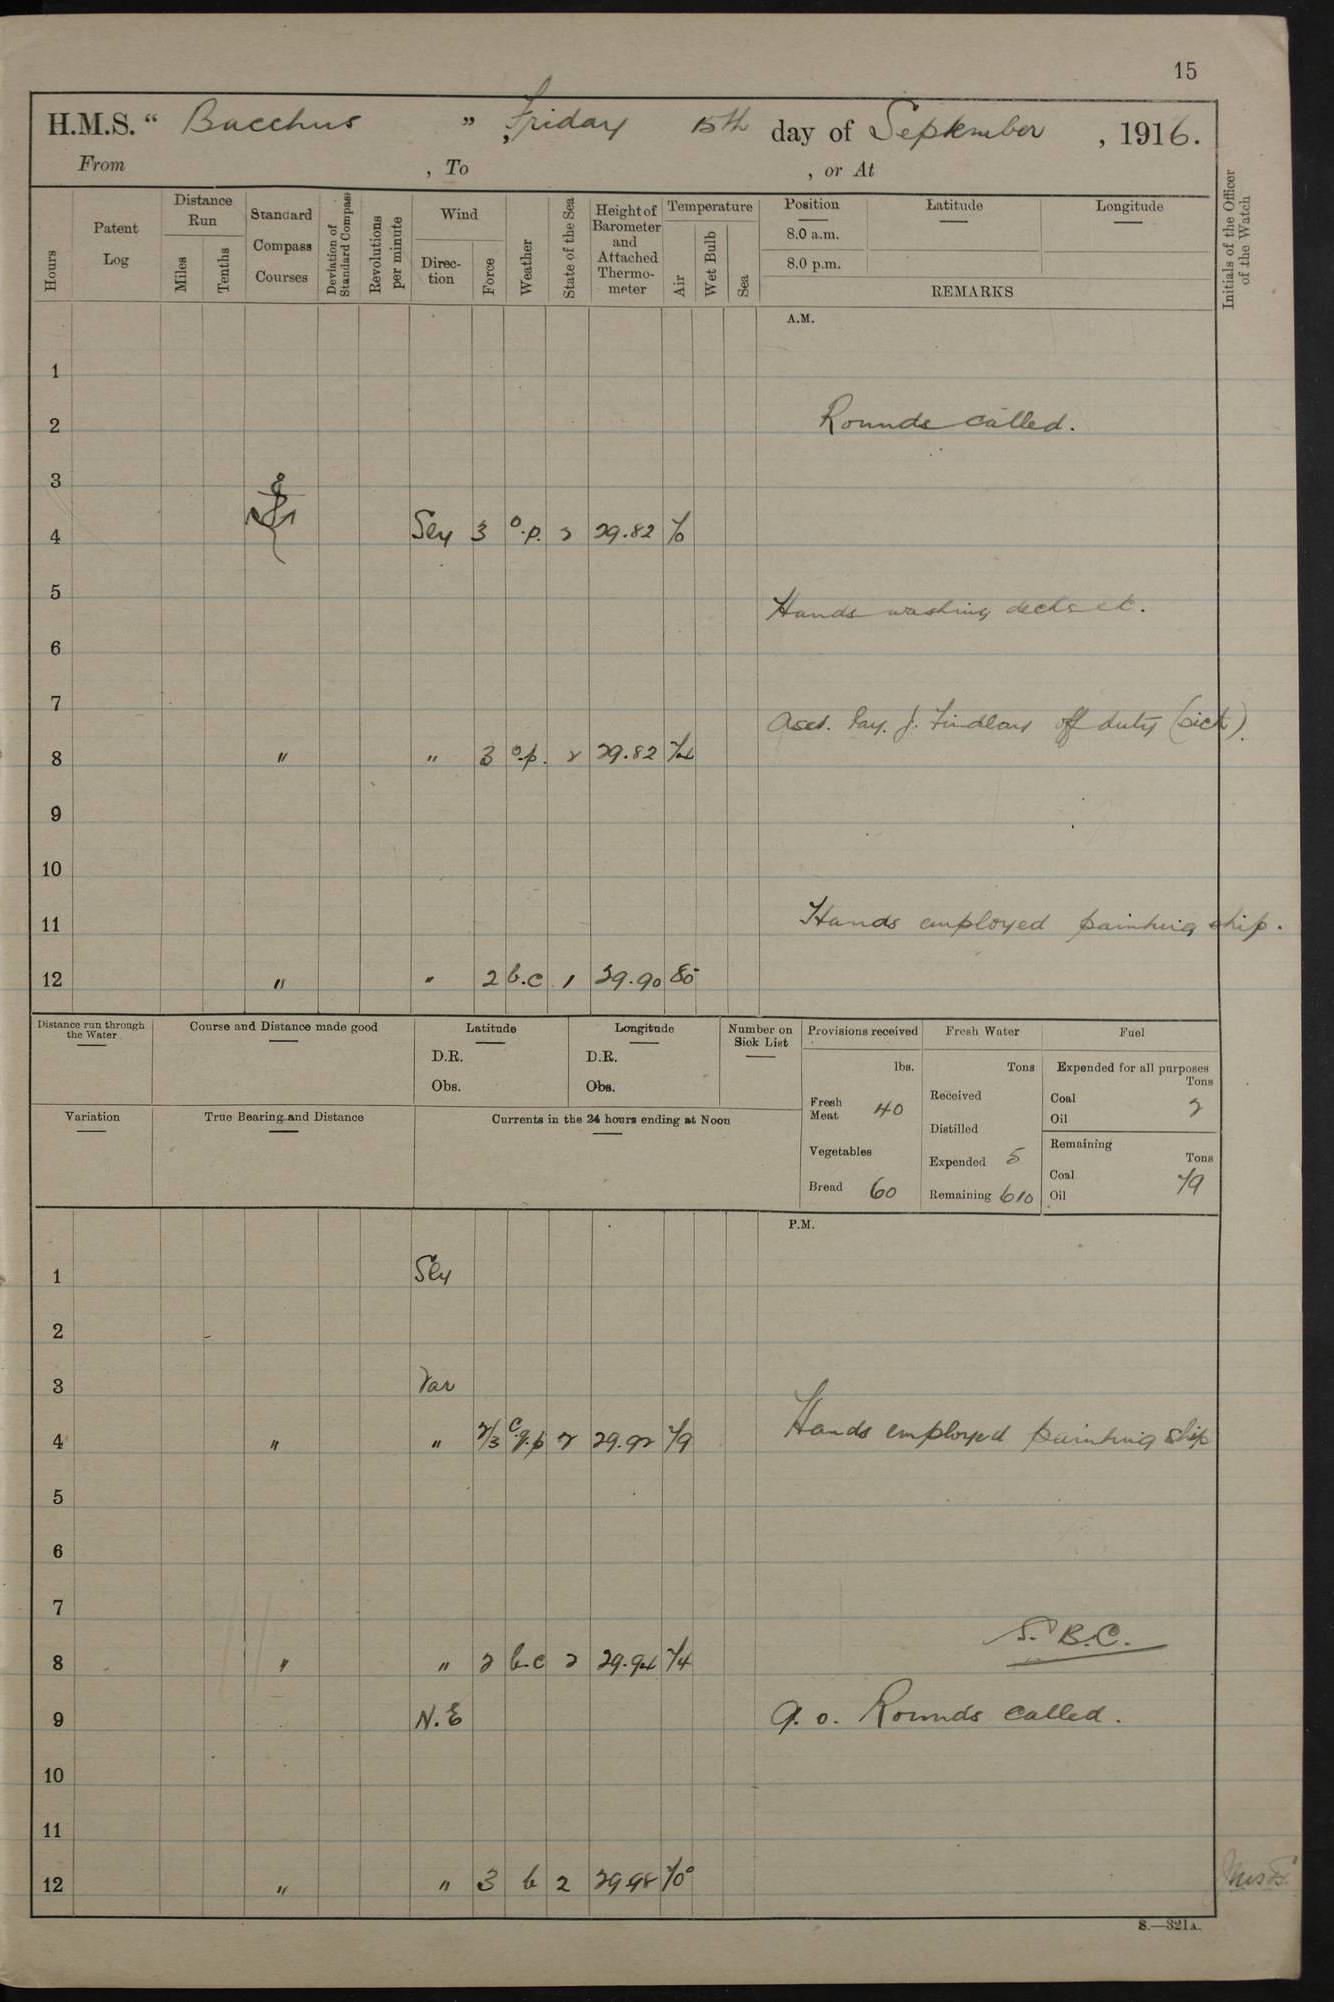 15
H.M.S. “ Bacchus ”, Friday 15th day of September, 1916.
From , To , or At
Hours
Patent Log
Distance Run
Miles
Tenths
Standard Compass Courses
Deviation of Standard Compass
Revolutions per minute
Wind
Direc-tion
Force
Weather
State of the Sea
Height of Barometer and Attached Thermo-meter
Temperature
Air
Wet Bulb
Sea
Position
8.0 a.m.
8.0 p.m.
Latitude
Longitude
REMARKS
Initials of the Officer of the Watch
A.M.
1
2 Rounds called.
3
4 Sly 3 o.p. 2 29.82 70
5 Hands washing decks etc.
6
7 J. Findlay off duty (sick).
8 " " 3 o.p. 2 29.82 74
9
10
11 Hands employed painting ship.
12 " " 2 b.c 1 29.90 80
Distance run through the Water
Course and Distance made good
Latitude
D.R.
Obs.
Longitude
D.R.
Obs.
Number on Sick List
Provisions received
lbs.
Fresh Meat 40
Vegetables
Bread 60
Fresh Water
Tons
Received
Distilled
Expended 5
Remaining 610
Fuel
Expended for all purposes
Tons
Coal 2
Oil
Remaining
Tons
Coal 79
Oil
Variation
True Bearing and Distance
Currents in the 24 hours ending at Noon
P.M.
1 Sly
2
3 Var
4 " " 2/3 c.q.p 2 29.92 79 Hands employed painting ship
5
6
7
S. B.C.
8 " " 2 b.c 2 29.94 74
9 N.E 9.0. Rounds called.
10
11
12 " " 3 b 2 29.98 70
S.—321A.